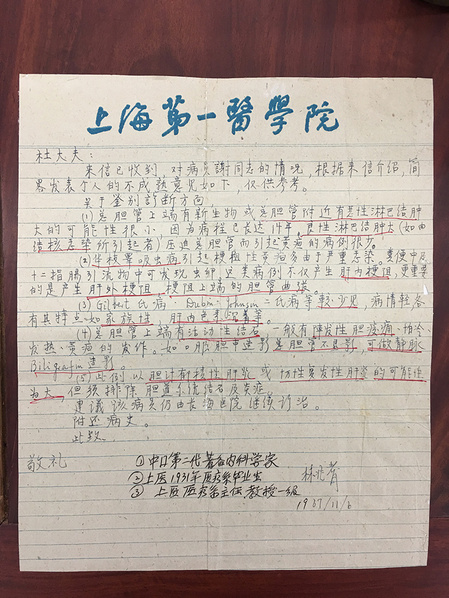 上海第一醫學院
杜大夫：
来信已收到，对病员謝同志的情况，根据来信介绍，简
畧发表个人的不成熟意见如下，仅供参考。
关于鉴别診断方面，
(1)总胆管上端有新生物或总胆管附近有恶性淋巴结肿
大的可能性很小，因为病程已长达14年，良性淋巴结肿大(如由
结核感染所引起者)压迫总胆管而引起黄疸的病例很少。
(2)华枝睾吸虫病引起梗阻性黄疸多由于严重感染，粪便中及
十二指腸引流物中可发现虫卵，这类病例不仅产生肝内梗阻，更重要
的是产生肝外梗阻，梗阻上端的胆管曲张。
(3) Gilbert氏病、Dubin-Johnson氏病等較少见，病情較各
有其特点如家族性，肝内色素沉着等。
(4)总胆管上端有活动性结石，一般有陣发性胆绞痛，怕冷
发热，黄疸的发作。如口服胆中造影是胆管不显影，可做静脉
Biligrafin造影。
(5)此例以胆汁郁積性肝炎或慢性复发性肝炎的可能性
为大，但须排除胆道系统结石及炎症。
建議该病员仍由长海医院继续診治。
附还病史。
此致
敬礼
林兆耆
1967/11/6
①中国第二代著名内科学家
②上医1931年医疗系毕业生
③上医医疗系主任教授一级